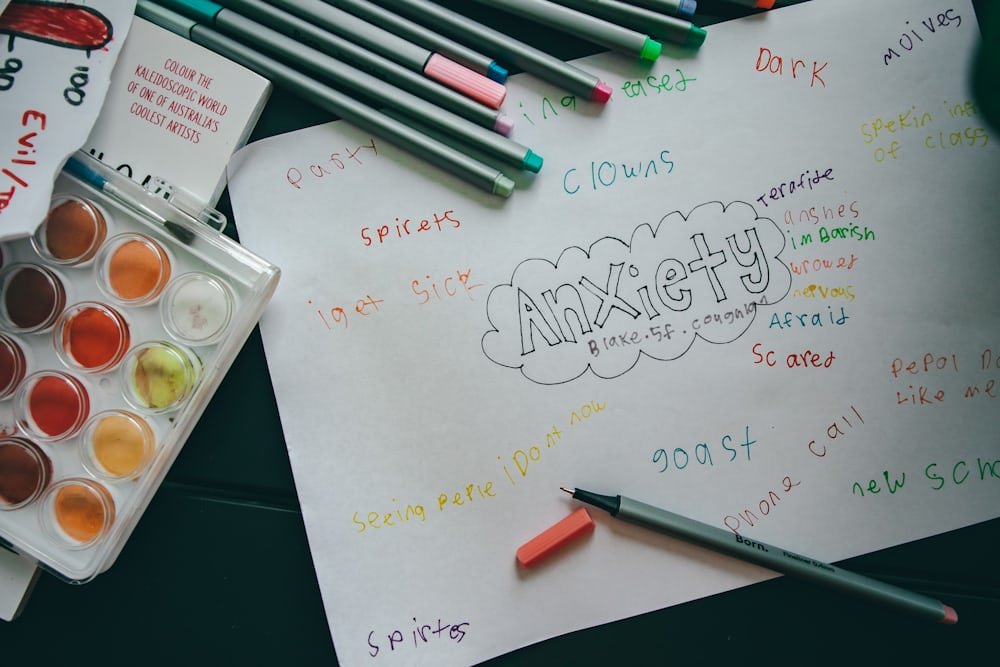 COLOUR THE
KALEIDOSCOPIC WORLD
OF ONE OF AUSTRALIA'S
COOLEST ARTISTS
Evil/
moives
Dark
eased
ing
party
clowns
spekin
of class
terafide
spirets
anshes
imBarish
Anxiety
wrower
iget sick
nervous
Blake.5f.
Afraid
Scared
pepol
Like me
seeing peple iDont now
goast
phone call
new
Born.
spirtes